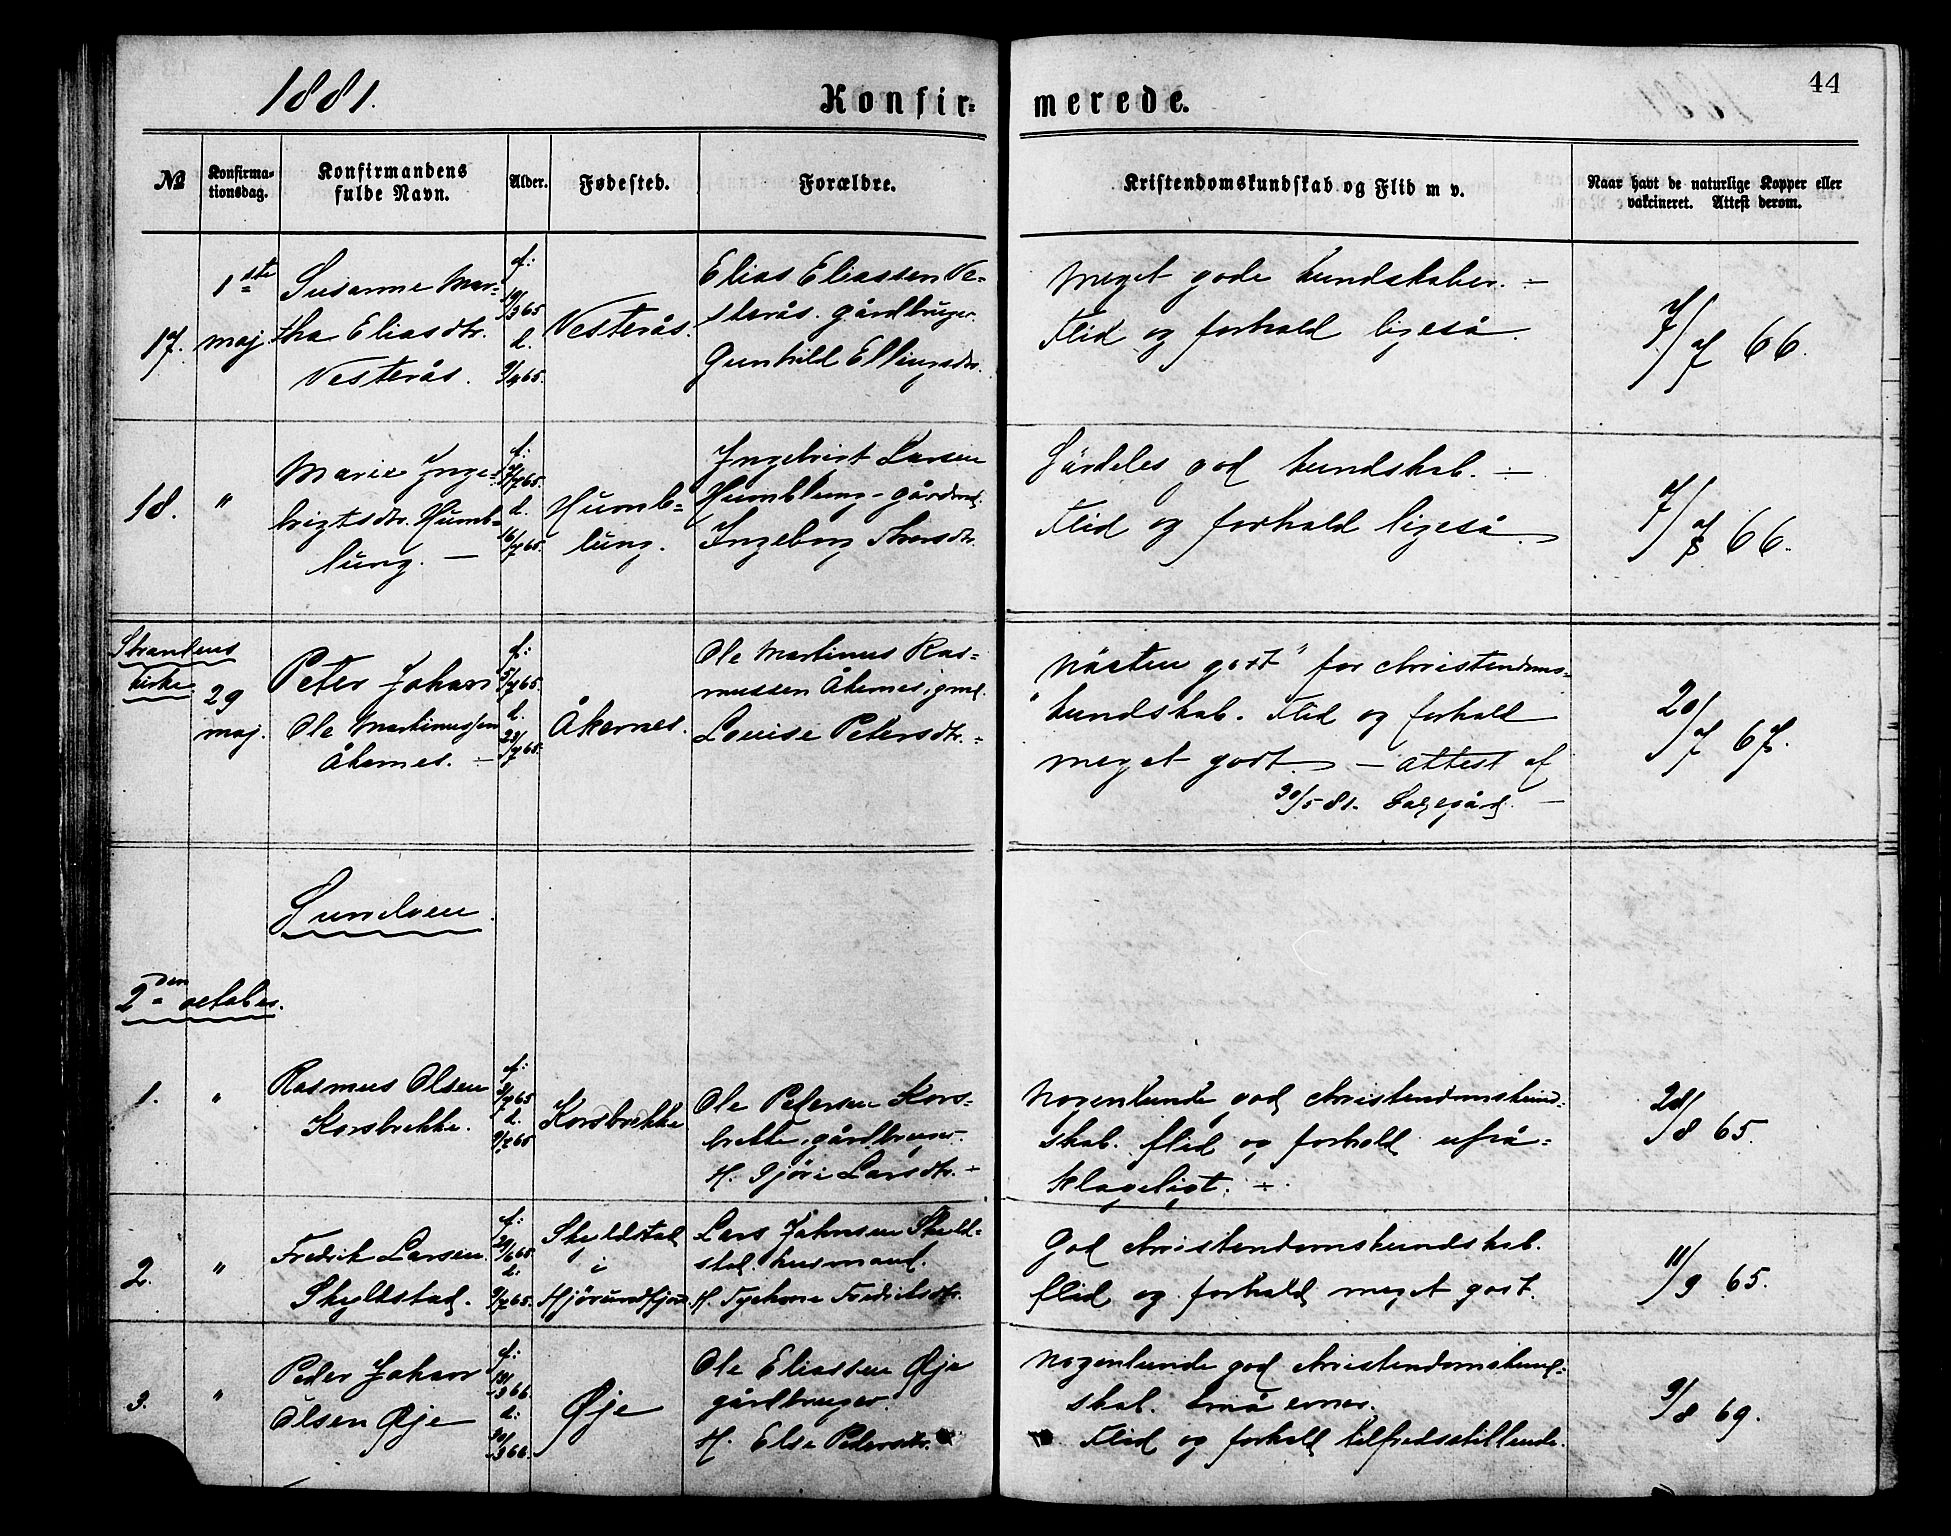 1881.
Konfir-
merede.
44
№
Konfirma-
tionsdag.
Konfirmandens
fulde Navn.
Alder.
Fødested.
Forældre.
Kristendomskundskab og Flid m v.
Naar havt de naturlige Kopper eller
vakcineret. Attest derom.
17.
1ste
maj
Susanne Mar-
tha Eliasdtr.
Vesterås.
f:
65
d.
65.
Vesterås.
Elias Eliassen Ve-
sterås. gårdbruger.
Gunhild Ellingsdtr.
Meget gode kundskaber. -
Flid og forhold ligeså.
7/7 66.
18.
"
Marie Inge-
brigtsdtr. Humb-
lung. —
f:
65.
d.
16/7 65.
Humb-
lung.
Ingebrigt Larsen
Humblung - gårdmd.
Ingeborg
Särdeles god kundskab. -
Flid og forhold ligeså.
66.
Strandens
kirke.
29
maj.
Peter Johan
Ole Martinussen
Åkernes. -
f:
65.
d.
23/7 65.
Åkernes.
Ole Martinus Ras-
mussen Åkernes, gmd.
Louise Petersdtr. -
Nästen godt" for christendoms-
"kundskab. Flid og forhold
meget godt. — attest af
30/5 81.
20/7 67.
Sunelven.
2den october.
1.
"
Rasmus Olsen
Korsbrekke.
f:
65
d.
65
Korsbrekke
Ole Petersen Kors-
brekke, gårdbruger.
H. Larsdtr. -
Nogenlunde god christendomskund-
skab. flid og forhold upå-
klageligt. -
28/8 65.
2.
"
Fredrik Larsen
Skyldstad.
f:
29/6 65.
d:
9/7 65.
Skyldstad
i
Hjörundfjord
Lars Johnsen Skyld-
stad. husmand.
H. Fredriksdtr.
God christendomskundskab.
flid og forhold meget godt.
11/9 65.
3.
"
Peder Johan
Olsen Øje
f:
66.
d:
66.
Øje
Ole Eliassen Øje
gårdbruger.
H. Else Pedersdtr.
Nogenlunde god christendomskund-
skab. Små evner.
Flid og forhold tilfredsstillende.
9/8 69.